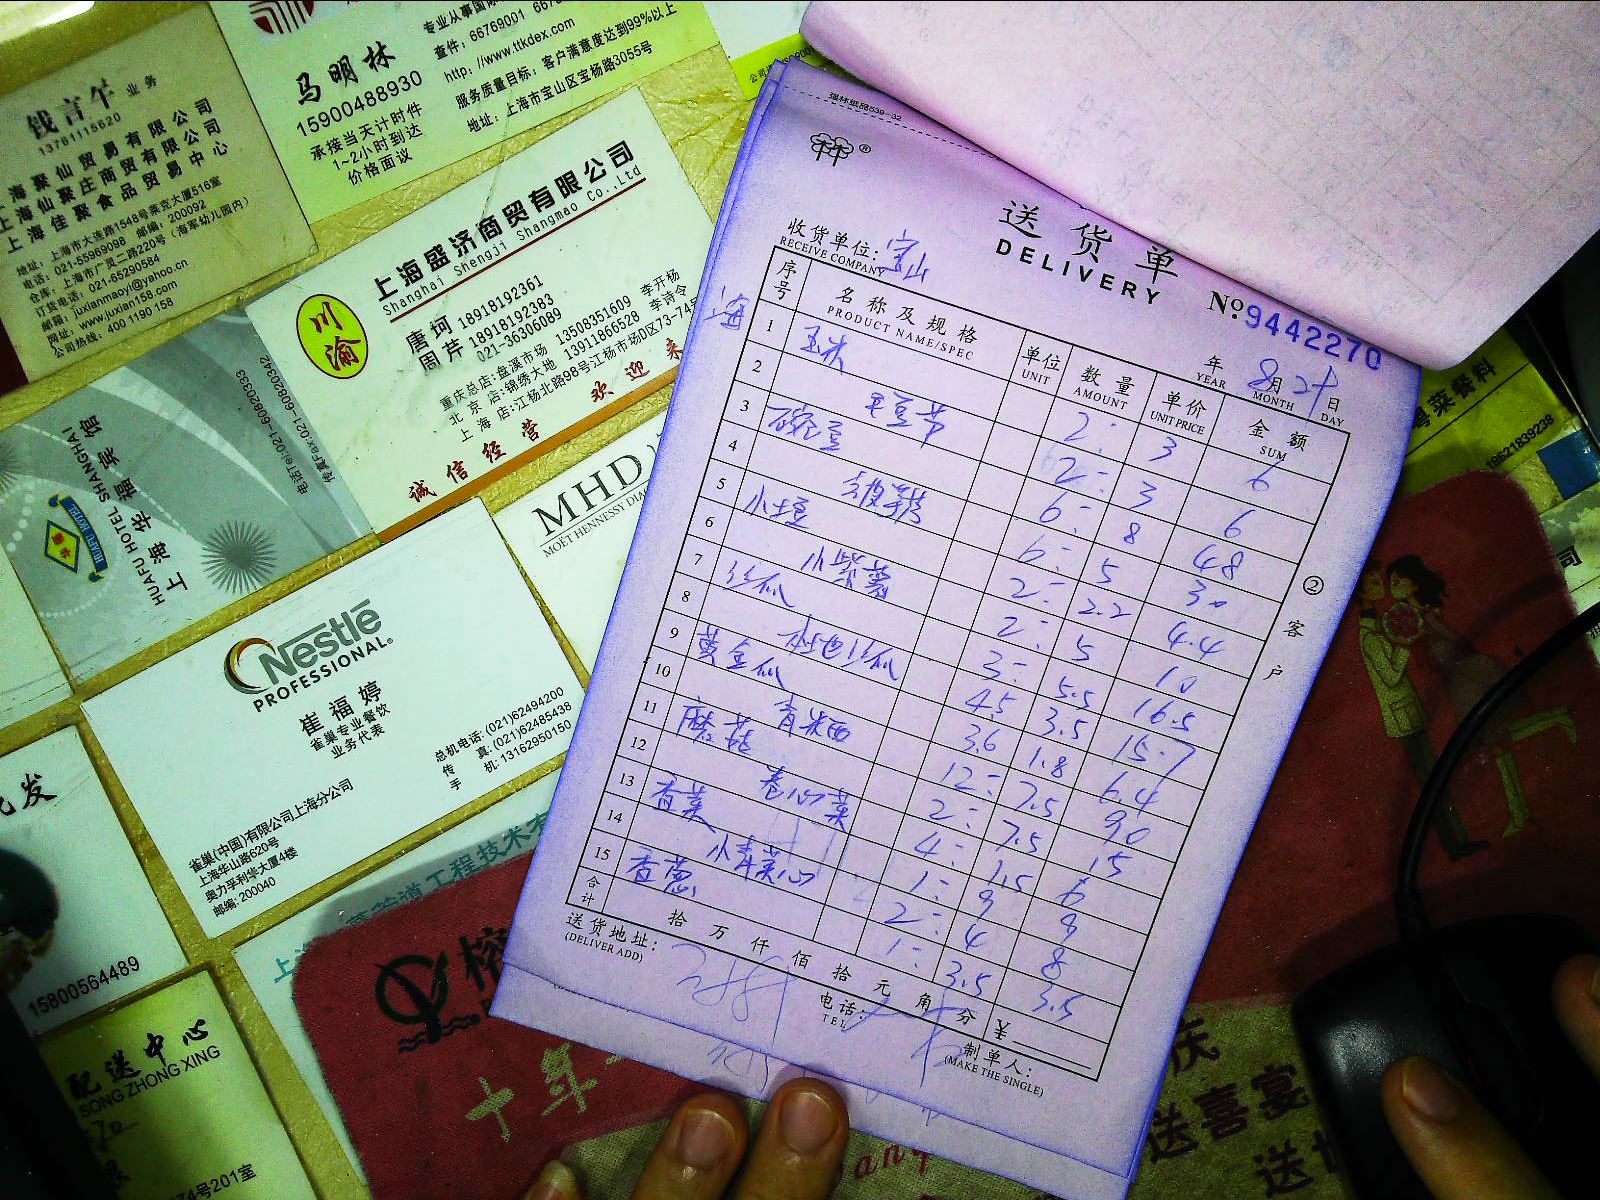 钱言午 业务
13761115620
上海聚仙贸易有限公司
上海仙聚庄商贸有限公司
上海佳聚食品贸易中心
地址：上海市大连路1548号莱克大厦516室
电话：021-55969098 邮编：200092
仓库：上海市广灵二路220号（海军幼儿园内）
订货电话：021-65290584
邮箱：juxianmaoyi@yahoo.cn
网址：www.juxian158.com
公司热线：400 1190 158
马明林
15900488930
承接当天计时件
1~2小时到达
价格面议
专业从事国际
查件：66769001
http：//www.ttkdex.com
服务质量目标：客户满意度达到99%以上
地址：上海市宝山区宝杨路3055号
上海盛济商贸有限公司
Shanghai Shengji Shangmao Co.,Ltd
川渝
唐珂 18918192361
周芹 18918192383
021-36306089
重庆总店：盘溪市场 13508351609 李开杨
北京店：锦绣大地 13911866528 李诗令
上海店：江杨北路98号江杨市场D区73-74号
诚信经营 欢迎来
上海华福宾馆
HUAFU HOTEL SHANGHAI
HUAFU HOTEL
电话Tel:021-60820333
传真Fax:021-60820342
MHD
MOËT HENNESSY DIA
Nestlé
PROFESSIONAL®
崔福婷
雀巢专业餐饮
业务代表
总机电话: (021)62494200
传 真: (021)62485438
手 机: 13162950150
雀巢(中国)有限公司上海分公司
上海华山路620号
奥力孚利华大厦4楼
邮编: 200040
15800564489
配送中心
SONG ZHONG XING
号201室
道工程技术
十年
送喜宴
粤菜餐料
18621839238
瑞林纸品539-32
送货单
DELIVERY
№ 9442270
收货单位: 宝山
RECEIVE COMPANY
海
年 8月 29日
YEAR MONTH DAY
序号 名称及规格 单位 数量 单价 金额
PRODUCT NAME/SPEC UNIT AMOUNT UNIT PRICE SUM
1 玉米 2 3 6
2 毛豆节 2 3 6
3 豌豆 6 8 48
4 6 5 30
5 小土豆 2 2.2 4.4
6 小紫薯 2 5 10
7 丝瓜 3 5.5 16.5
8 本地丝瓜 4.5 3.5 15.7
9 黄金瓜 3.6 1.8 6.4
10 青米西 12 7.5 90
11 蘑菇 2 7.5 15
12 卷心菜 4 1.5 6
13 香菜 1 9 9
14 小青菜心 2 4 8
15 香葱 1 3.5 3.5
合计 拾 万 仟 佰 拾 元 角 分 ¥
送货地址:
(DELIVER ADD)
电话:
TEL
制单人:
(MAKE THE SINGLE)
② 客户